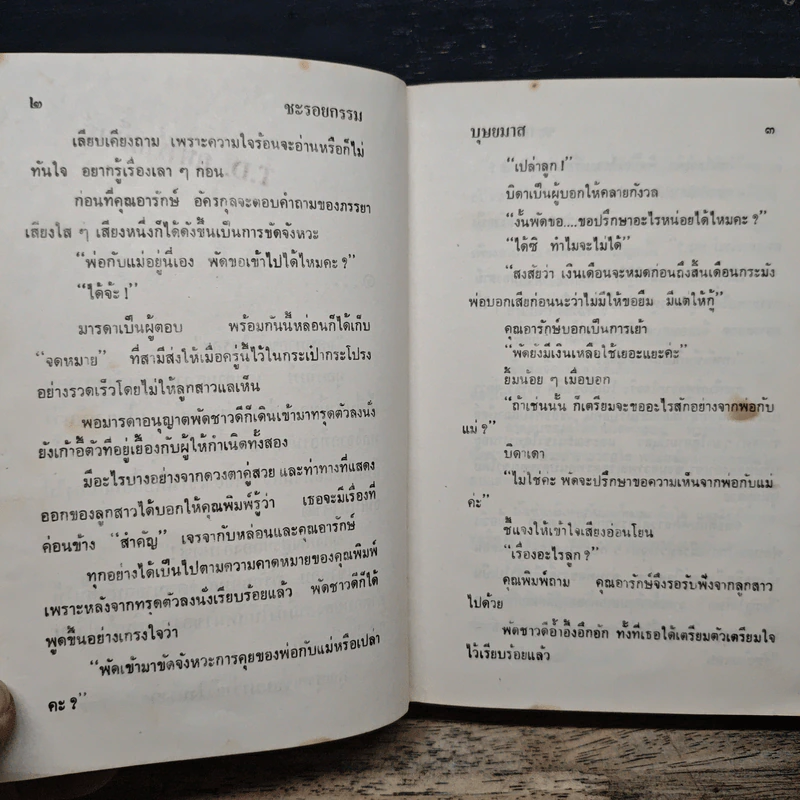 ๒
ชะรอยกรรม
เลียบเคียงถาม เพราะความใจร้อนจะอ่านหรือก็ไม่
ทันใจ อยากรู้เรื่องเลา ๆ ก่อน
ก่อนที่คุณอารักษ์ อัครกุลจะตอบคำถามของภรรยา
เสียงใส ๆ เสียงหนึ่งก็ได้ดังขึ้นเป็นการขัดจังหวะ
“พ่อกับแม่อยู่นี่เอง พัดขอเข้าไปได้ไหมคะ ?”
“ได้จ้ะ !”
มารดาเป็นผู้ตอบ พร้อมกันนี้หล่อนก็ได้เก็บ
“จดหมาย” ที่สามีส่งให้เมื่อครู่นี้ไว้ในกระเป๋ากระโปรง
อย่างรวดเร็วโดยไม่ให้ลูกสาวแลเห็น
พอมารดาอนุญาตพัดชาวดีก็เดินเข้ามาทรุดตัวลงนั่ง
ยังเก้าอี้ตัวที่อยู่เยื้องกับผู้ให้กำเนิดทั้งสอง
มีอะไรบางอย่างจากดวงตาคู่สวย และท่าทางที่แสดง
ออกของลูกสาวได้บอกให้คุณพิมพ์รู้ว่า เธอจะมีเรื่องที่
ค่อนข้าง “สำคัญ” เจรจากับหล่อนและคุณอารักษ์
ทุกอย่างได้เป็นไปตามความคาดหมายของคุณพิมพ์
เพราะหลังจากทรุดตัวลงนั่งเรียบร้อยแล้ว พัดชาวดีก็ได้
พูดขึ้นอย่างเกรงใจว่า
“พัดเข้ามาขัดจังหวะการคุยของพ่อกับแม่หรือเปล่า
คะ ?”
บุษยมาส
๓
“เปล่าลูก !”
บิดาเป็นผู้บอกให้คลายกังวล
“งั้นพัดขอ....ขอปรึกษาอะไรหน่อยได้ไหมคะ ?”
“ได้ซิ ทำไมจะไม่ได้”
“สงสัยว่า เงินเดือนจะหมดก่อนถึงสิ้นเดือนกระมัง
พ่อบอกเสียก่อนนะว่าไม่มีให้ขอยืม มีแต่ให้กู้”
คุณอารักษ์บอกเป็นการเย้า
“พัดยังมีเงินเหลือใช้เยอะแยะค่ะ”
ยิ้มน้อย ๆ เมื่อบอก
“ถ้าเช่นนั้น ก็เตรียมจะขออะไรสักอย่างจากพ่อกับ
แม่ ?”
บิดาเดา
“ไม่ใช่ค่ะ พัดจะปรึกษาขอความเห็นจากพ่อกับแม่
ค่ะ”
ชี้แจงให้เข้าใจเสียงอ่อนโยน
“เรื่องอะไรลูก ?”
คุณพิมพ์ถาม คุณอารักษ์จึงรอรับฟังจากลูกสาว
ไปด้วย
พัดชาวดีอ้ำอึ้งอึกอัก ทั้งที่เธอได้เตรียมตัวเตรียมใจ
ไว้เรียบร้อยแล้ว